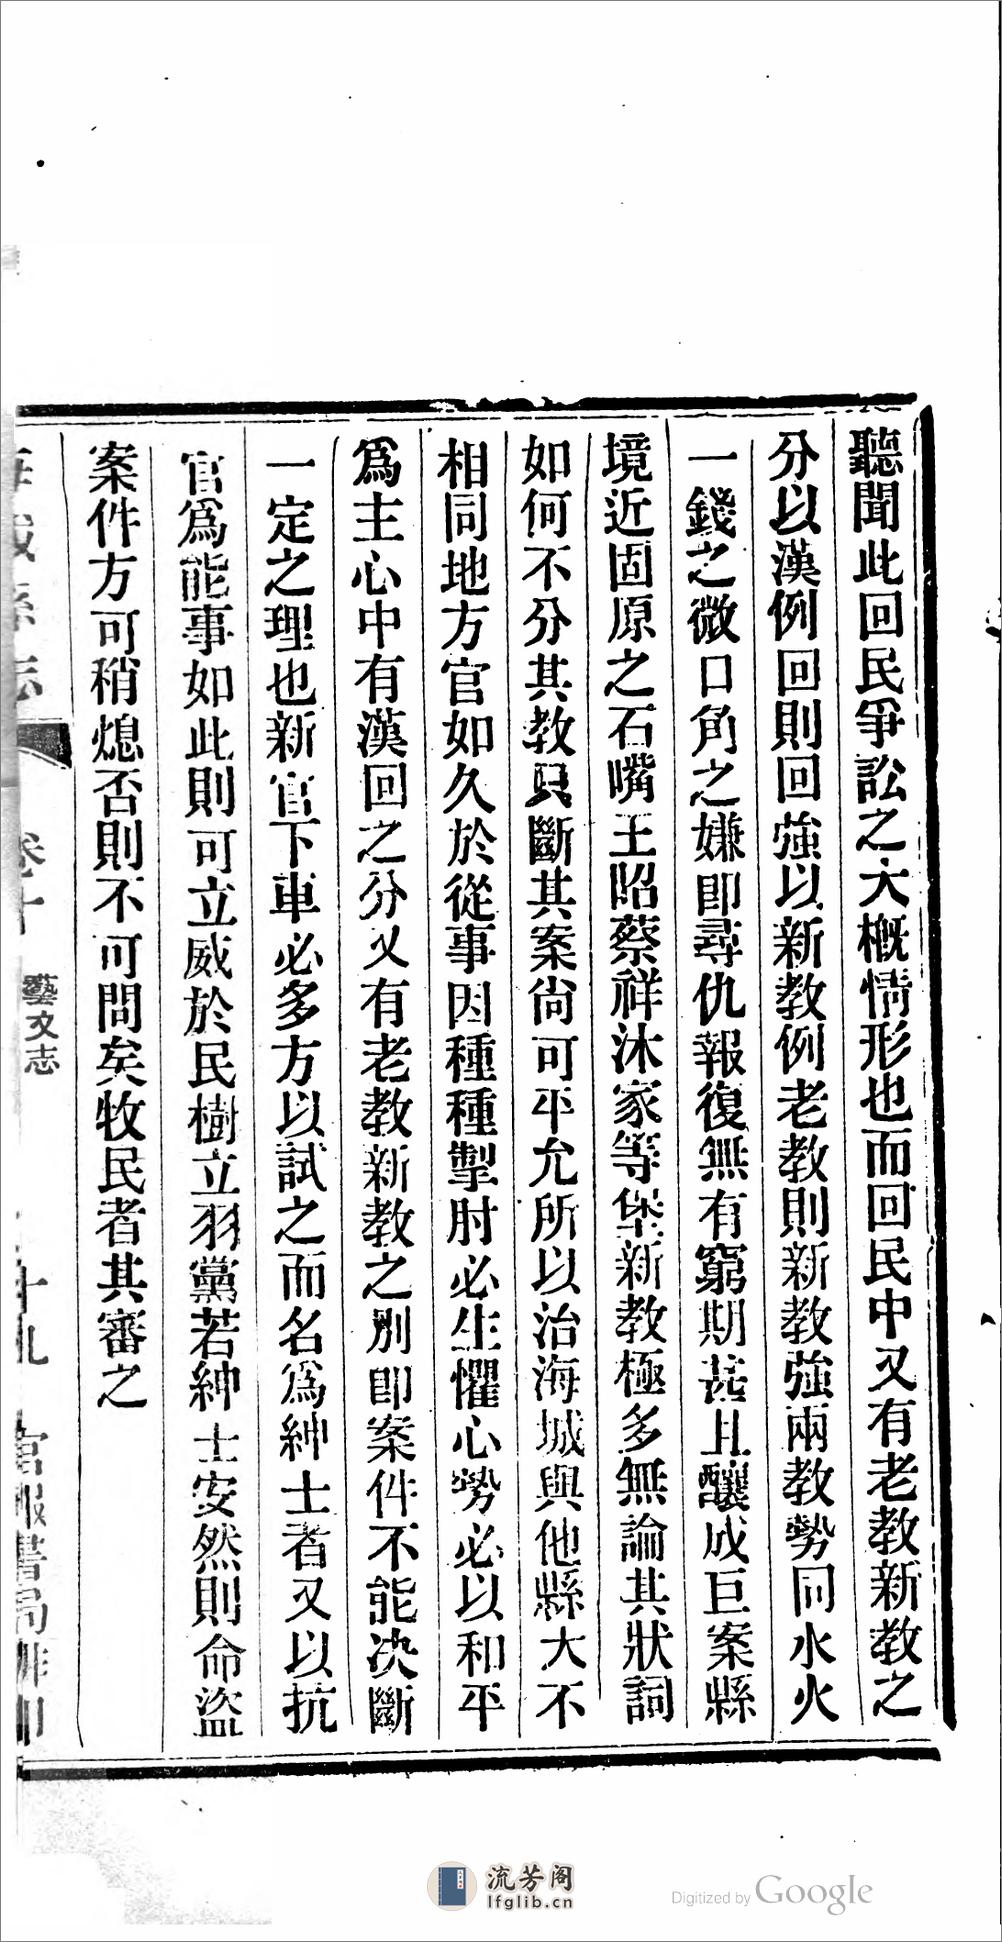 聽聞此回民爭訟之大概情形也而回民中又有老教新教之
分以漢例回則回強以新教例老教則新教強兩教勢同水火
一錢之微口角之嫌即尋仇報復無有窮期甚且釀成巨案縣
境近固原之石嘴王昭蔡祥沐家等堡新教極多無論其狀詞
如何不分其教只斷其案尚可平允所以治海城與他縣大不
相同地方官如久於從事因種種掣肘必生懼心勢必以和平
爲主心中有漢回之分又有老教新教之別即案件不能决斷
一定之理也新官下車必多方以試之而名爲紳士者又以抗
官爲能事如此則可立威於民樹立羽黨若紳士安然則命盜
案件方可稍熄否則不可問矣牧民者其審之
海城縣志 卷十 藝文志 二十九 官報書局排印
流芳阁
lfglib.cn
Digitized by Google